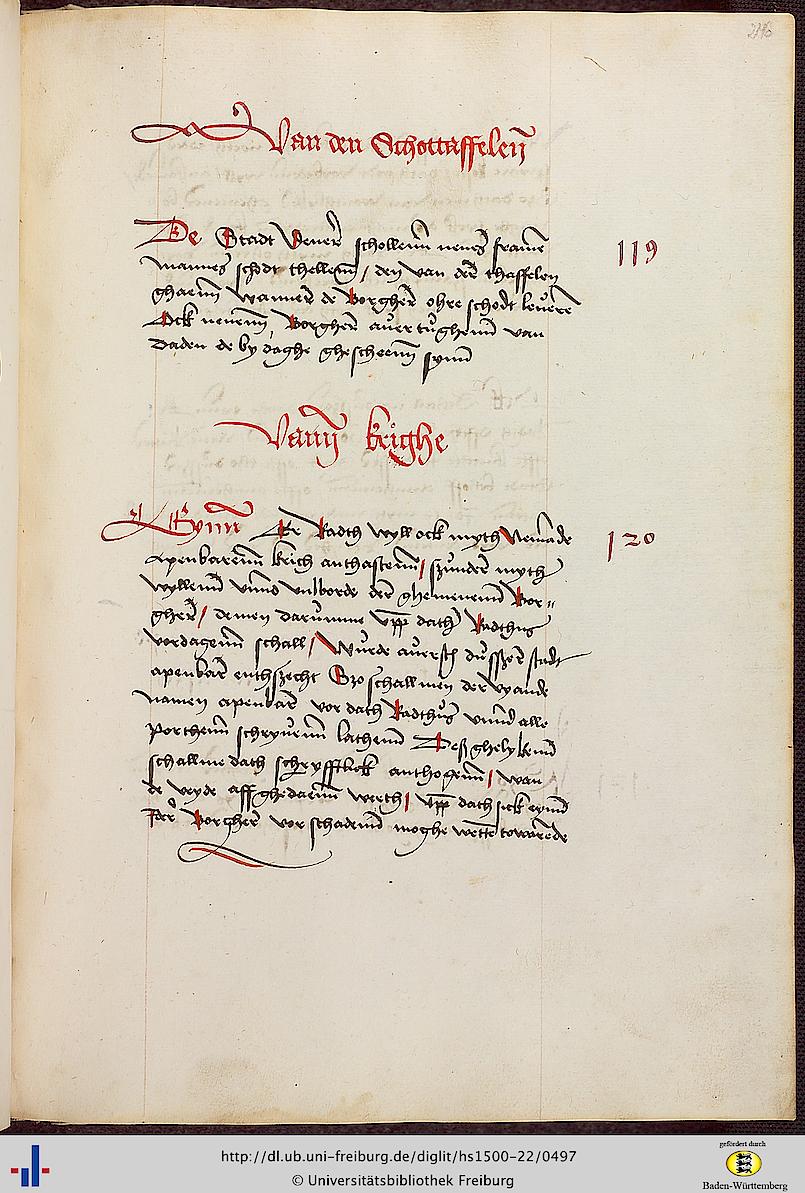 216
Van den Schottaffelen
De Stadt Dener schollenn nenes framen
mannes schodt thellenn / den van der thaffelen
ghaenn wanner de Borgher ohre schodt leuere
Ock nenenn Borgher auertughenn van
Daden de by daghe ghescheenn synn
119
Vann krighe
Eynn Er Radth wyll ock myth Nemande
apenbarenn krich anthastenn / szunder myth
wyllenn vnnd vulborde der ghemenenn Bor-
gher / demen darumme vpp dath Radthus
vordagenn schall / Wurde auersth dusszer stadt
apenbar enthszecht Szo schall men der vyande
namen apenbar vor dath Radthus vnnd alle
Porthenn schryuenn lathenn Deß ghelykenn
schall me dath schryfftlick anthogenn / wan
de veyde affghedaenn werth / vpp dath sick eynn
Jder Borgher vor schadenn moghe wette towarede
120
http://dl.ub.uni-freiburg.de/diglit/hs1500-22/0497
© Universitätsbibliothek Freiburg
gefördert durch
Baden-Württemberg